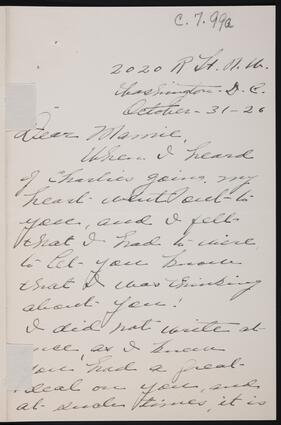 C.7.99a
2020 R St. N.W.
Washington D.C.
October-31-26
Dear Mamie,
When I heard
of Charlies going my
heart went out to
you, and I felt
that I had to wire
to let you know
that I was thinking
about you!
I did not write at
once, as I knew
you had a great
deal on you, and
at such times, it is